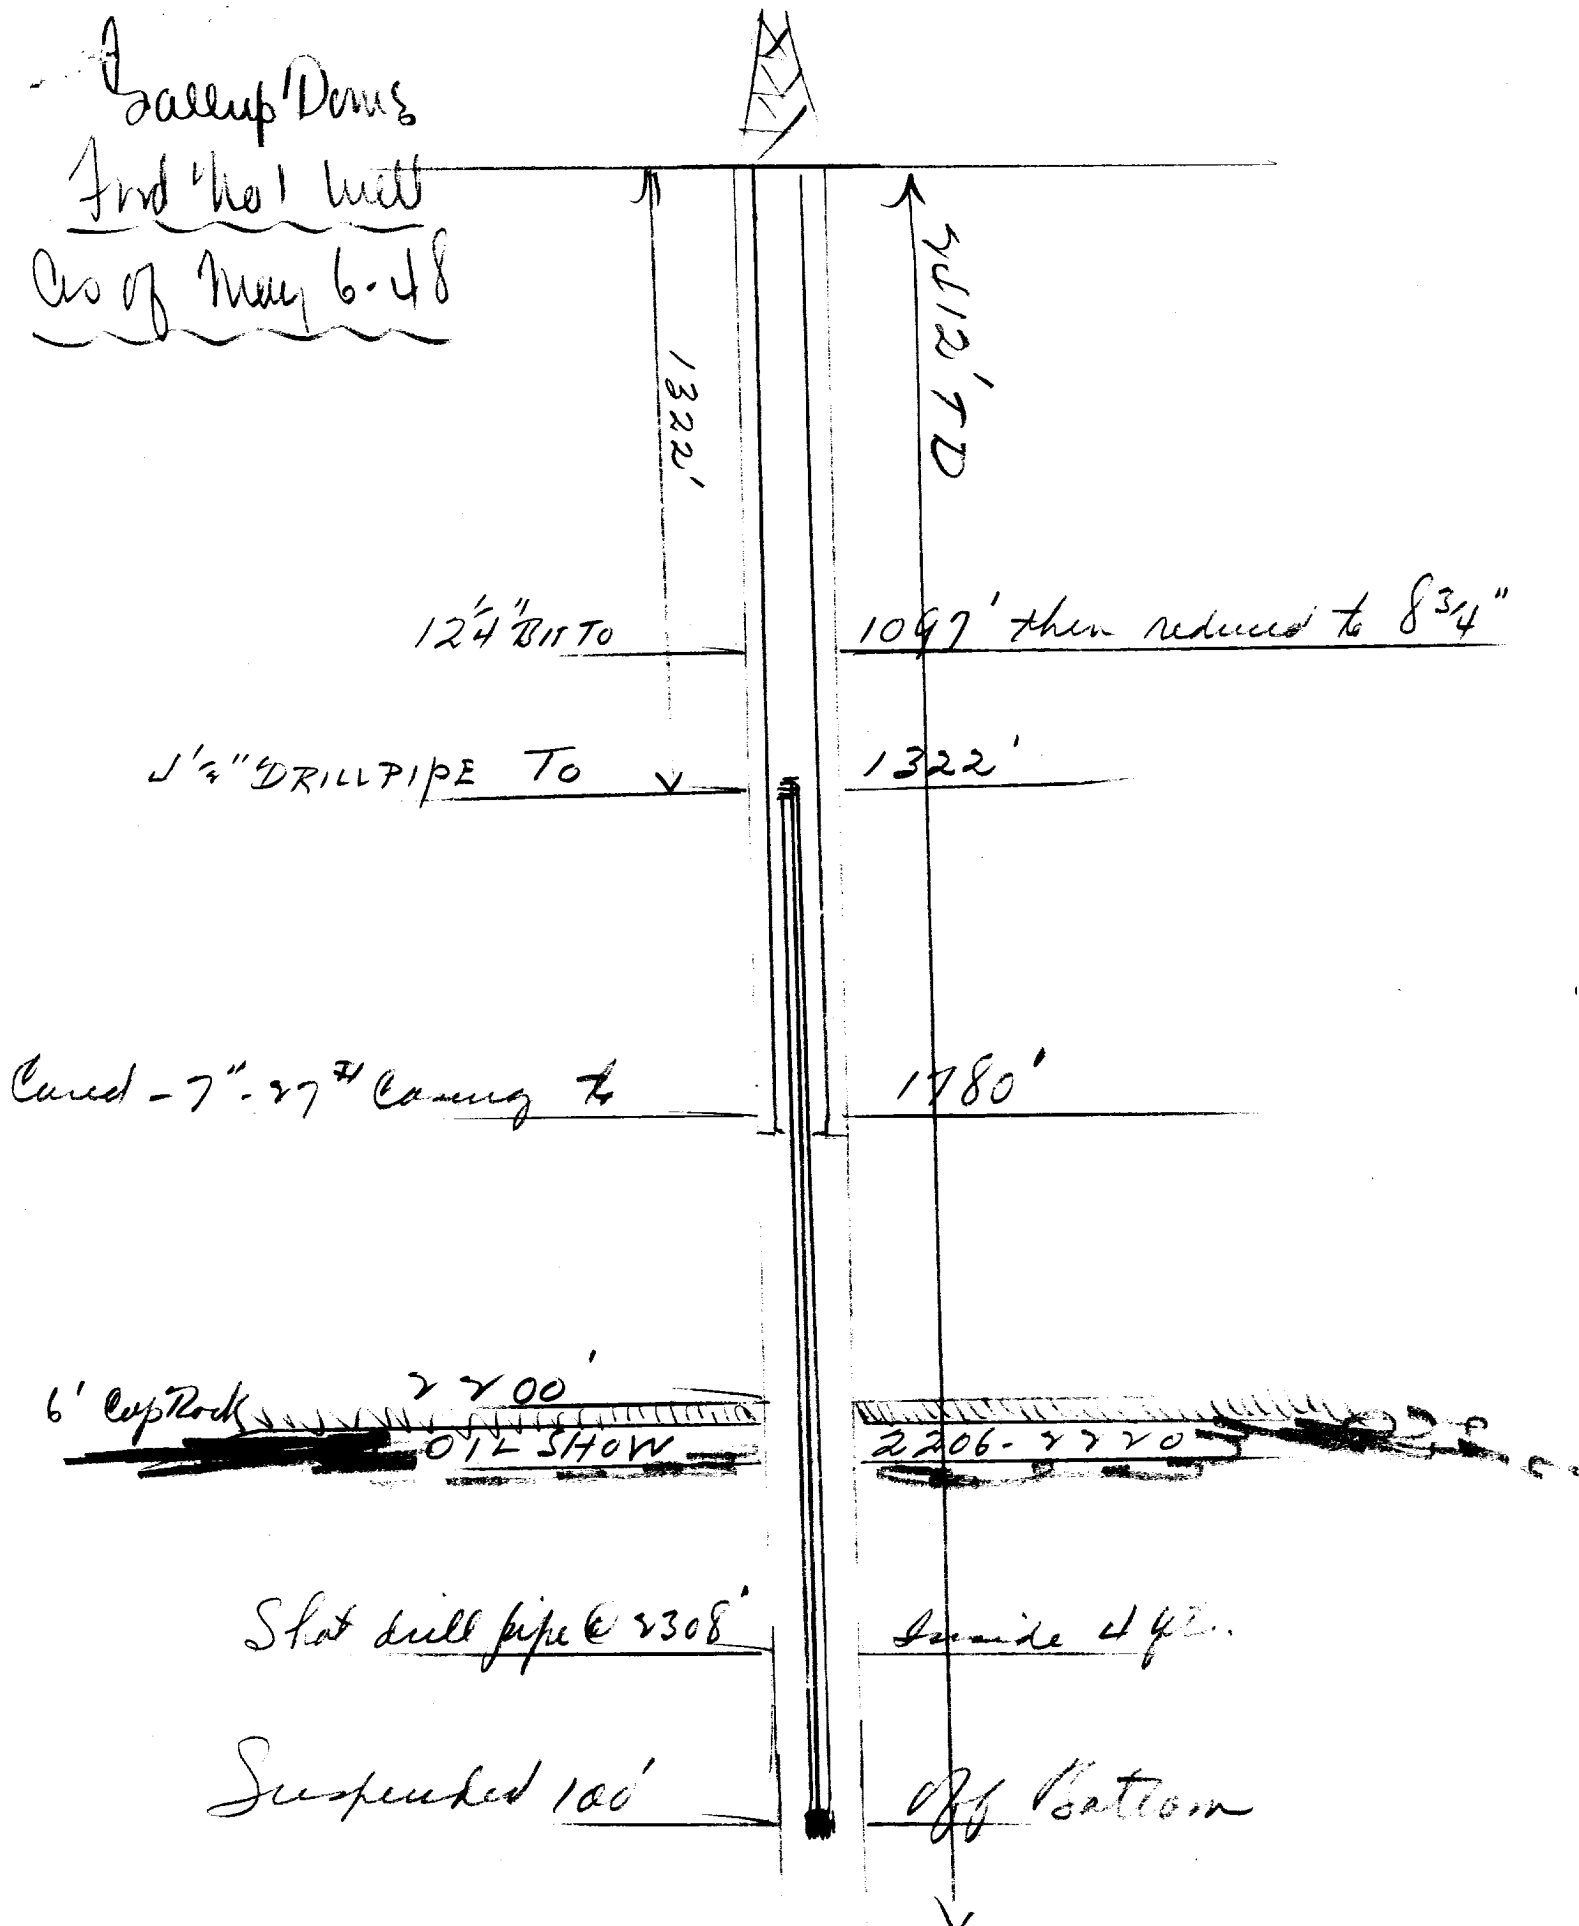 Gallup Dome
Ford No 1 Well
As of May 6-48
1322'
2412' TD
12 1/4" Bit To 1097' then reduced to 8 3/4"
4 1/2" DRILL PIPE To 1322'
Caved - 7" - 27# Casing to 1780'
6' Cap Rock 2200'
OIL SHOW 2206-2220
Shot drill pipe @ 2308' Inside 4
Suspended 100' off Bottom